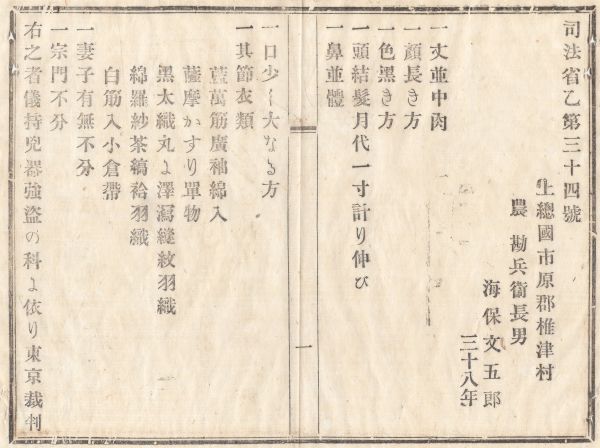 司法省乙第三十四號
上總國市原郡椎津村
農 勘兵衞長男
海保文五郎
三十八年
一丈並中肉
一顏長き方
一色黑き方
一頭結髮月代一寸計り伸び
一鼻並體
一
一口少しく大なる方
一其節衣類
藍萬筋廣袖綿入
薩摩かすり單物
黑太織丸に澤瀉縫紋羽織
綿羅紗茶縞袷羽織
白筋入小倉帶
一妻子有無不分
一宗門不分
右之者儀持兇器強盜の科に依り東京裁判